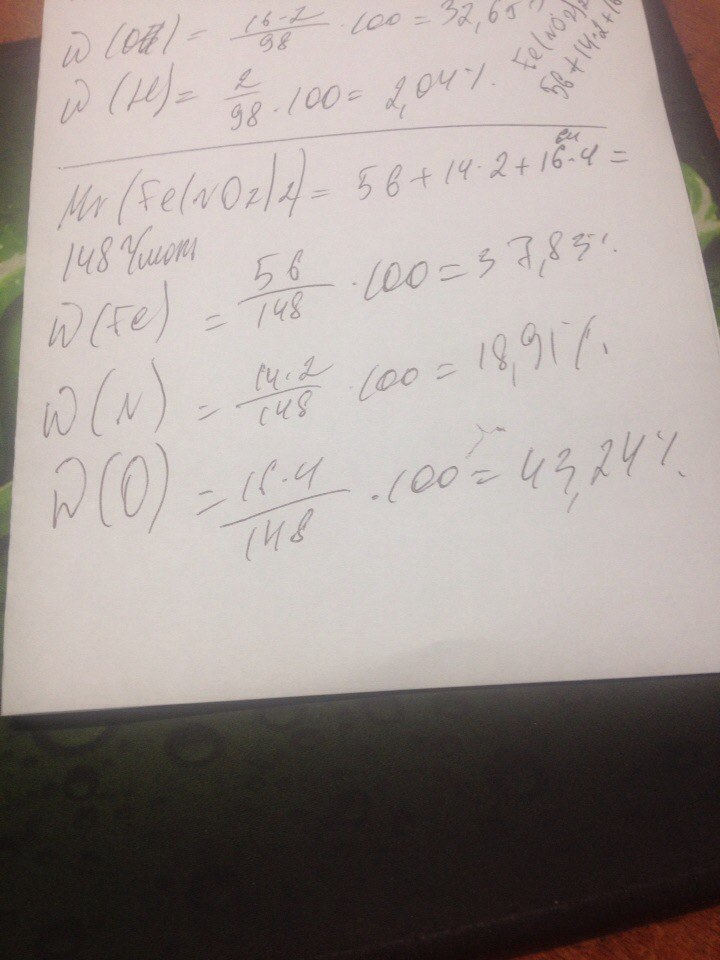 W(OH) = 16·2/98 · 100 = 32,65%
W(H) = 2/98 · 100 = 2,04%.
Fe(NO2)2
56+14·2+16
Mr(Fe(NO2)2) = 56+14·2+16·4 =
64
148 г/моль
W(Fe) = 56/148 · 100 = 37,83%.
W(N) = 14·2/148 · 100 = 18,91%.
W(O) = 16·4/148 · 100 = 43,24%.